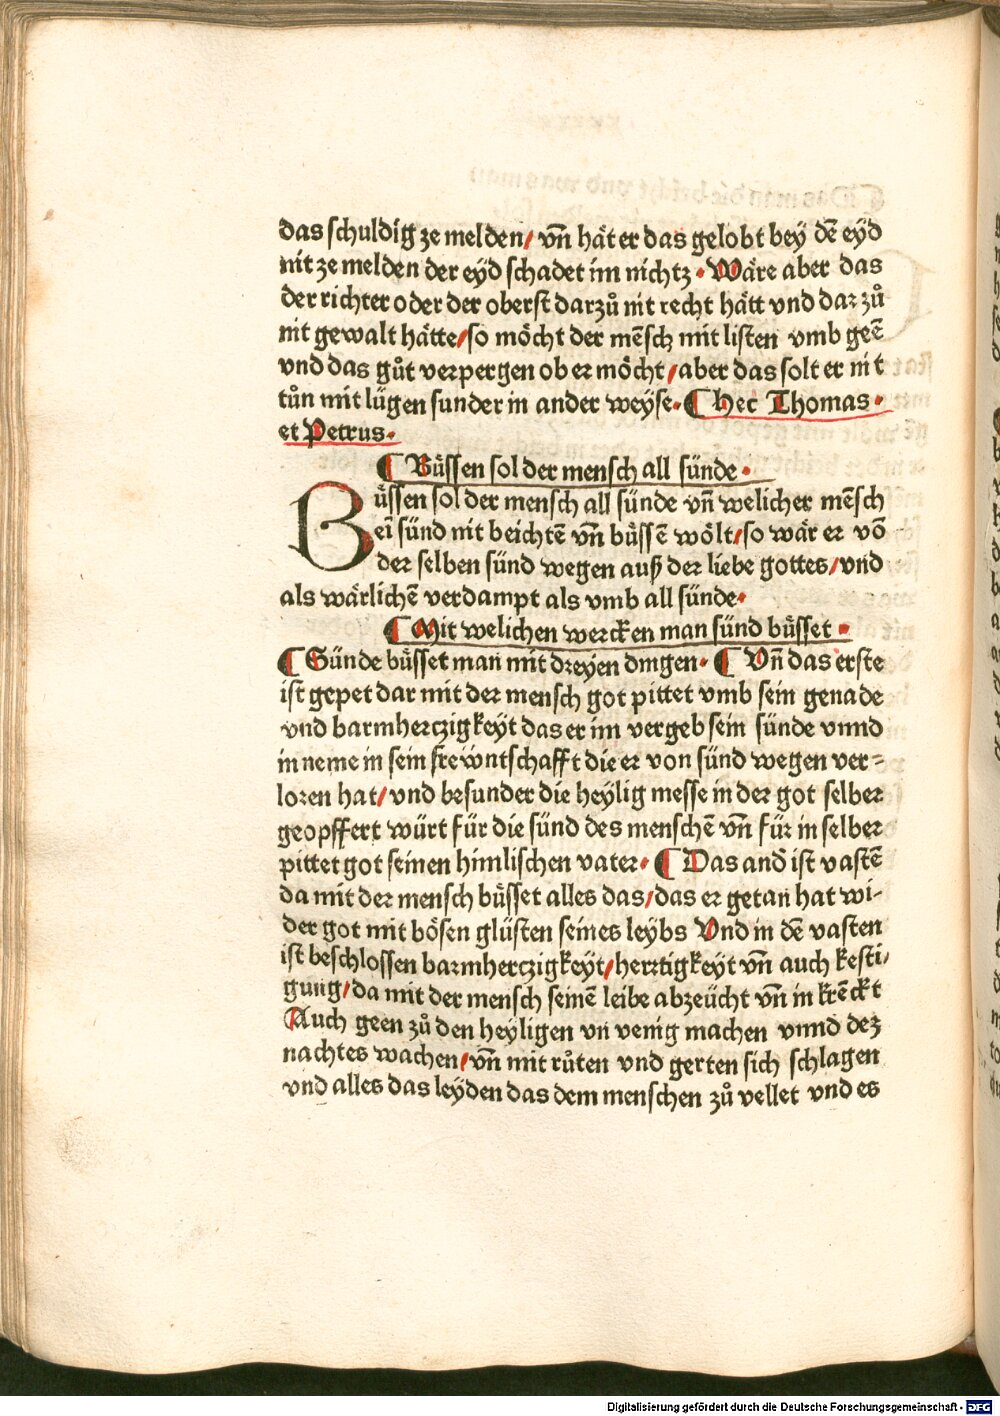 das schuldig ze melden/ vn̄ hät er das gelobt bey dē eyd
nit ze melden der eyd schadet im nichtz · Wäre aber das
der richter oder der oberst darzů nit recht hätt vnd darzů
nit gewalt hätte/ so möcht der mēsch mit listen vmb geē
vnd das gůt verpergen ob er möcht/ aber das solt er nit
tůn mit lügen sunder in ander weyse· ¶ Hec Thomas ·
et Petrus·
¶ Büssen sol der mensch all sünde ·
Büssen sol der mensch all sünde vn̄ welicher mēsch
ei sünd nit beichtē vn̄ büssē wölt/ so wär er vō
der selben sünd wegen auß der liebe gottes/ vnd
als wärlichē verdampt als vmb all sünde·
¶ Mit welichen wercken man sünd büsset ·
¶ Sünde büsset man mit dreyen dingen· ¶ Vn̄ das erste
ist gepet dar mit der mensch got pittet vmb sein genade
vnd barmherczigkeyt das er im vergeb sein sünde vnnd
in neme in sein frewntschafft die er von sünd wegen ver-
loren hat/ vnd besunder die heylig messe in der got selber
geopffert würt für die sünd des menschē vn̄ für in selber
pittet got seinen himlischen vater· ¶ Das and ist vastē
da mit der mensch büsset alles das/ das er getan hat wi-
der got mit bösen glüsten seines leybs Vnd in dē vasten
ist beschlossen barmherczigkeyt/ herttigkeyt vn̄ auch kesti/
gung/ da mit der mensch seinē leibe abzeücht vn̄ in krēckt
Auch geen zů den heyligen vn venig machen vnnd dez
nachtes wachen/ vn̄ mit růten vnd gerten sich schlagen
vnd alles das leyden das dem menschen zů vellet vnd es
Digitalisierung gefördert durch die Deutsche Forschungsgemeinschaft - DFG